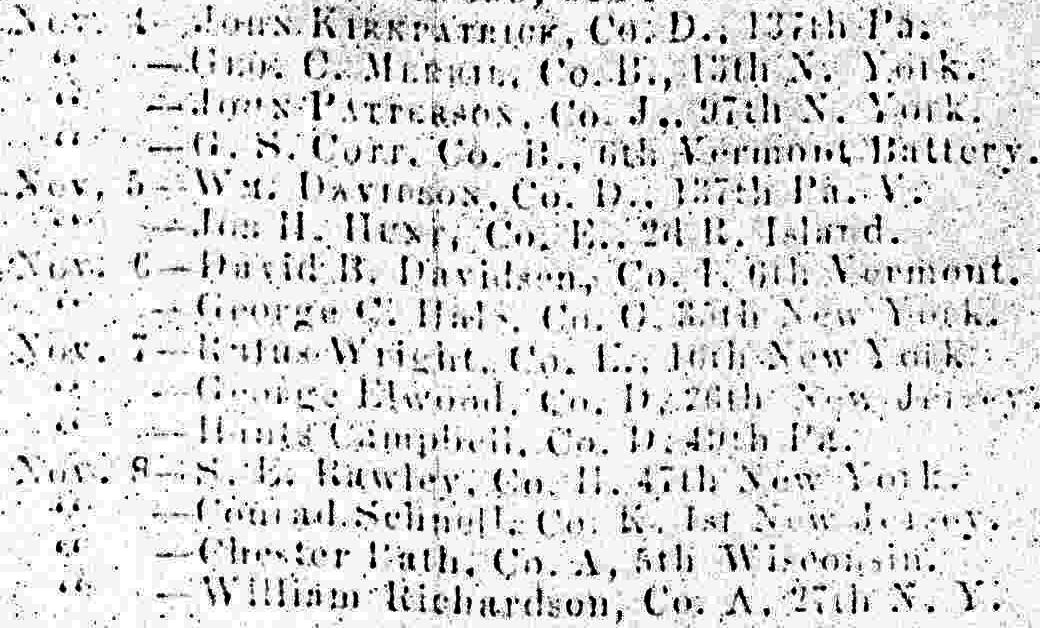 Nov. 4- JOHN KIRKPATRICK, Co. D., 137th Pa.
" —GEO. C. MERRIL, Co. B., 13th N. York.
" —JOHN PATTERSON, Co. J., 97th N. York.
" —G. S. Corr, Co. B., 6th Vermont Battery.
Nov. 5—WM. DAVIDSON, Co. D., 137th Pa. V.
" — H. Co. E., 2d R. Island.
Nov. 6—David B. Davidson, Co. 6th Vermont.
" —George C. Co. New York.
Nov. 7—Rufus Wright, Co. E., 16th New York.
" —George Elwood, Co. D, 26th New Jersey.
" — Campbell, Co. D, 49th Pa.
Nov. —S. E. Rawley, Co. H, 47th New York.
" —Conrad Schnell, Co. K, 1st New Jersey.
" —Chester Co. A, 5th Wisconsin.
" —William Richardson, Co. A, 27th N. Y.